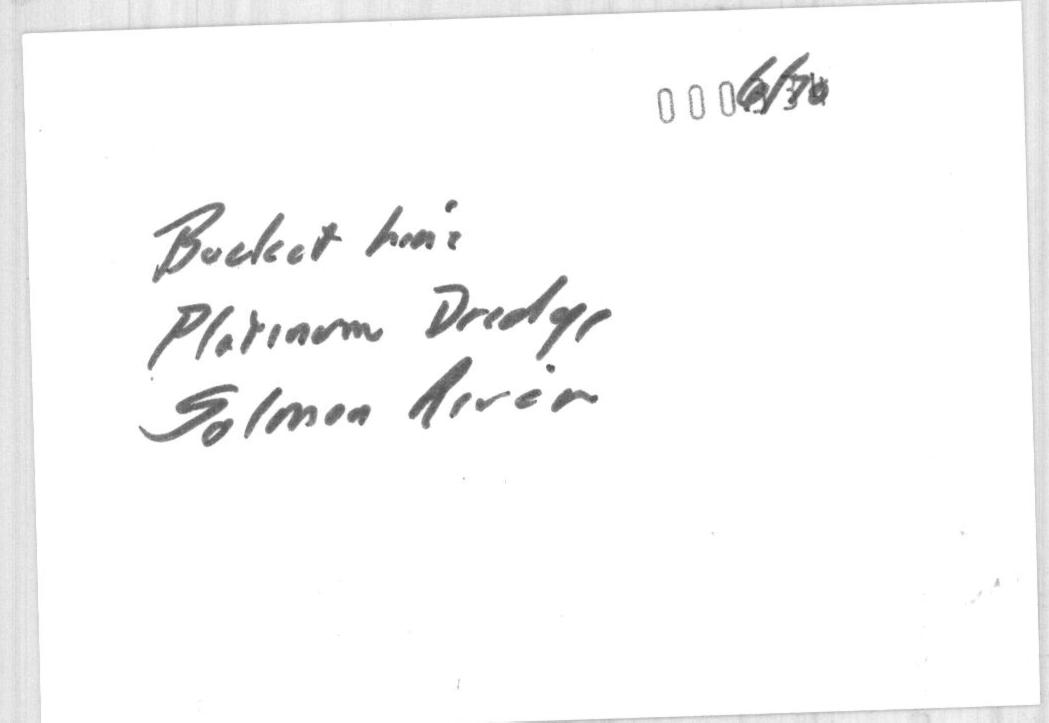 000 6/70
Bucket Line
Platinum Dredge
Salmon River